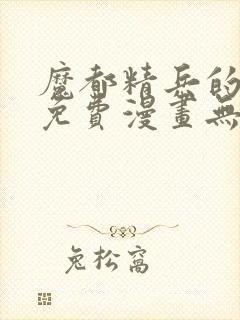 魔都精兵的
免費漫畫無
兔松窩